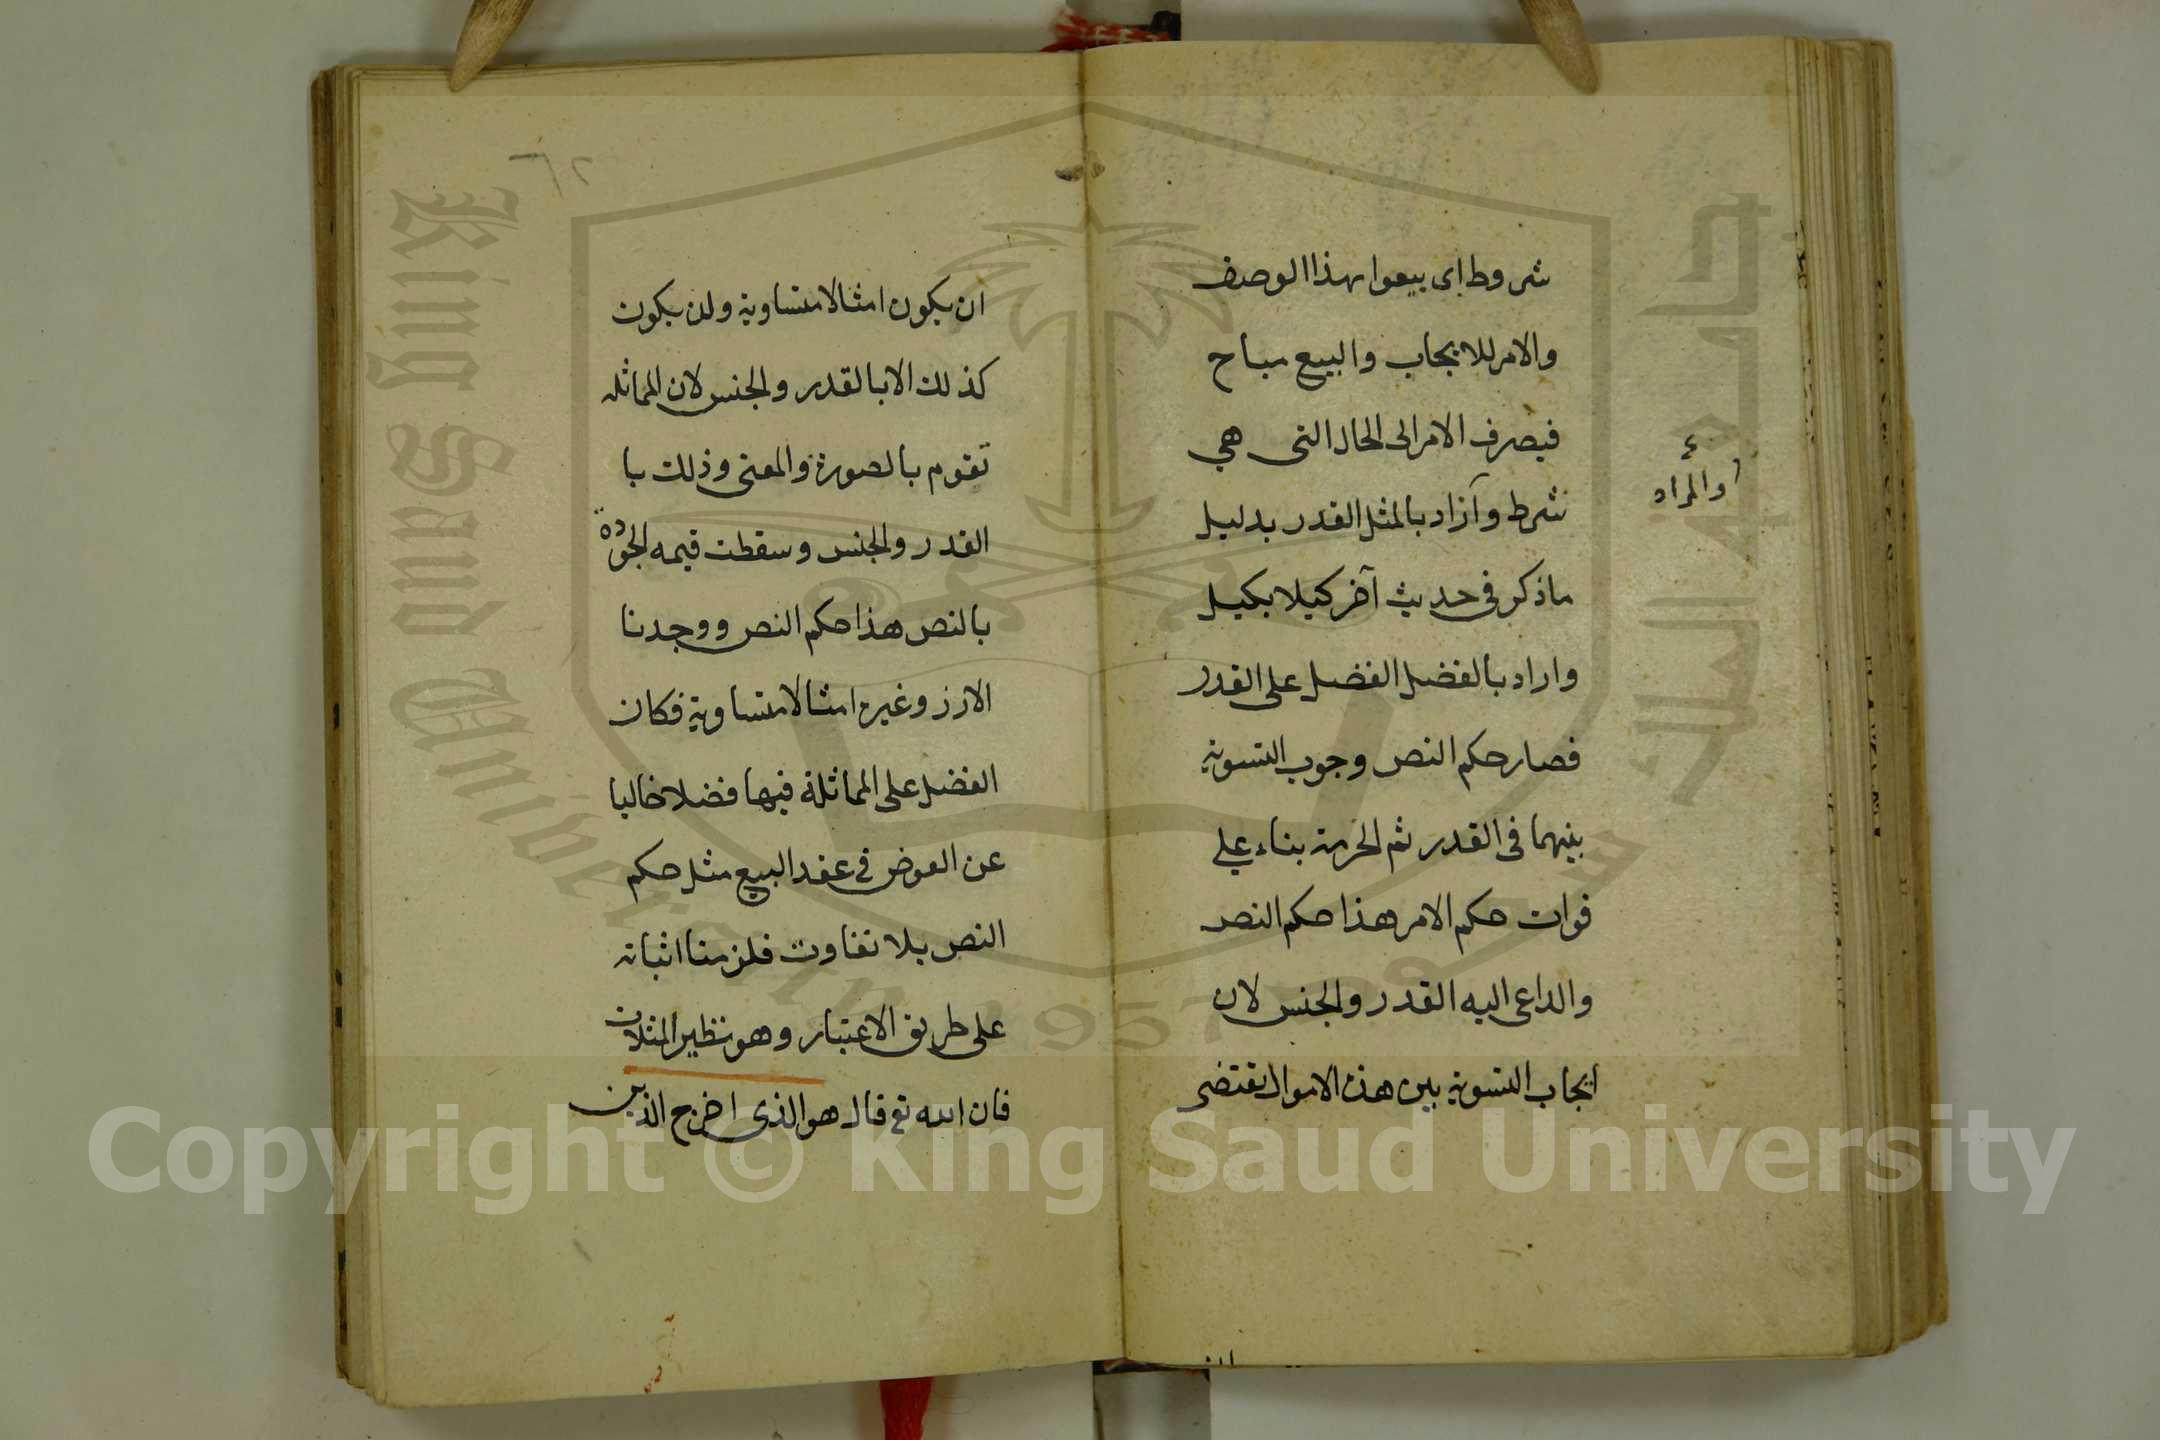 شروط اى بيعوا بهذا الوصف
والامر للايجاب والبيع مباح
فيصرف الامر الى الحال التى هي
شرط وآراد بالمثل القدر بدليل
ماذكر فى حديث آخر كيلا بكيل
واراد بالفضل الفضل على القدر
فصار حكم النص وجوب التسوية
بينهما فى القدر ثم الحرمة بناء علي
فوات حكم الامر هذا حكم النص
والداعى اليه القدر والجنس لان
ايجاب التسوية بين هذه الاموال يقتضى
او المراد
٦٢
ان يكون امثالا متساوية ولن يكون
كذلك الا بالقدر والجنس لان المماثله
تقوم بالصورة والمعنى وذلك با
القدر والجنس وسقطت قيمه الجودة
بالنص هذا حكم النص ووجدنا
الارز وغيره امثالا متساوية فكان
الفضل على المماثلة فيها فضلا خاليا
عن العوض فى عقد البيع مثل حكم
النص بلا تفاوت فلزمنا اثباته
على طريق الاعتبار وهو نظير المثلات
فان الله تع قال هو الذى اخرج الذين
King Saud University
جامعة الملك سعود
1957
Copyright © King Saud University